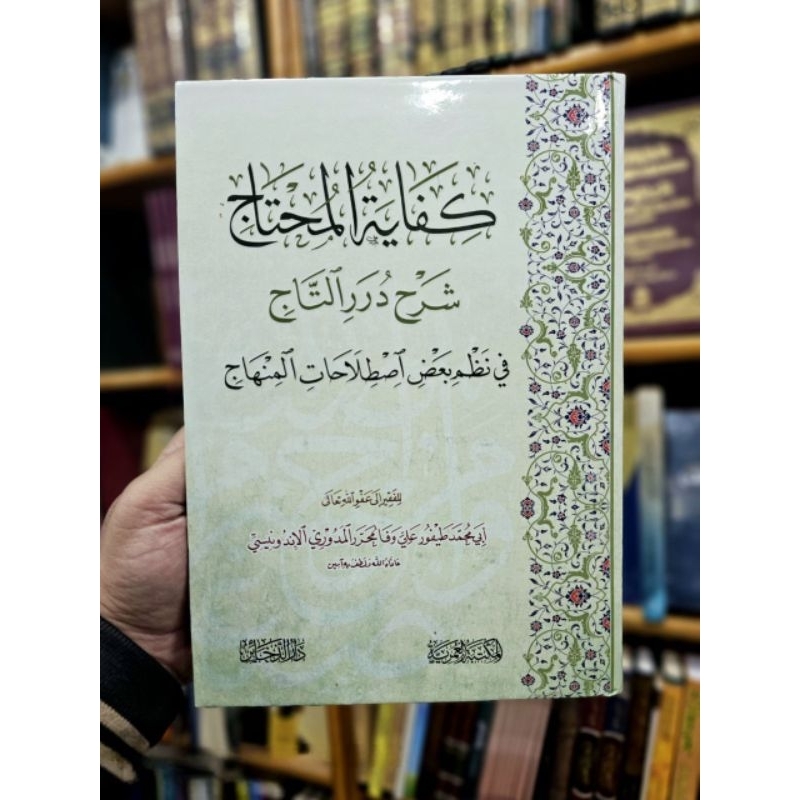 كِفَايَةُ المُحْتَاجِ
شَرْحُ دُرَرِ التَّاجِ
فِي نَظْمِ بَعْضِ اصْطِلَاحَاتِ المِنْهَاجِ
للفقير إلى عفو الله تعالى
أبي محمد طيفور علي وفا محرر المدوري الإندونيسي
عامله الله بلطفه آمين
المكتبة العزيزية
دار